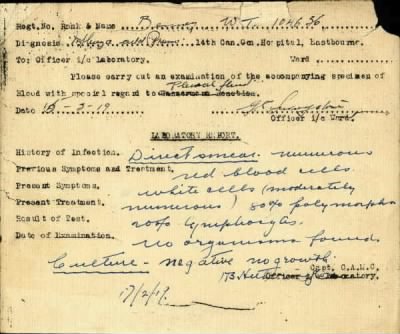 Regt.No. Rank & Name W.T. 1046 36
Diagnosis 14th Can.Gen.Hospital, Eastbourne.
To: Officer i/c Laboratory. Ward
Please carry out an examination of the accompanying specimen of
Pleural fluid
Blood with special regard to Wasserman Reaction.
Date 15-3-19
Officer i/c Ward.
LABORATORY REPORT.
History of Infection. Direct smear. numerous
Previous Symptoms and Treatment. red blood cells.
Present Symptoms. white cells (moderately
Present Treatment. numerous) 80% polymorphs
Result of Test. 20% lymphocytes.
Date of Examination. no organisms found
Culture - negative no growth.
Capt. C.A.M.C.
Officer i/c Laboratory.
17/3/19.